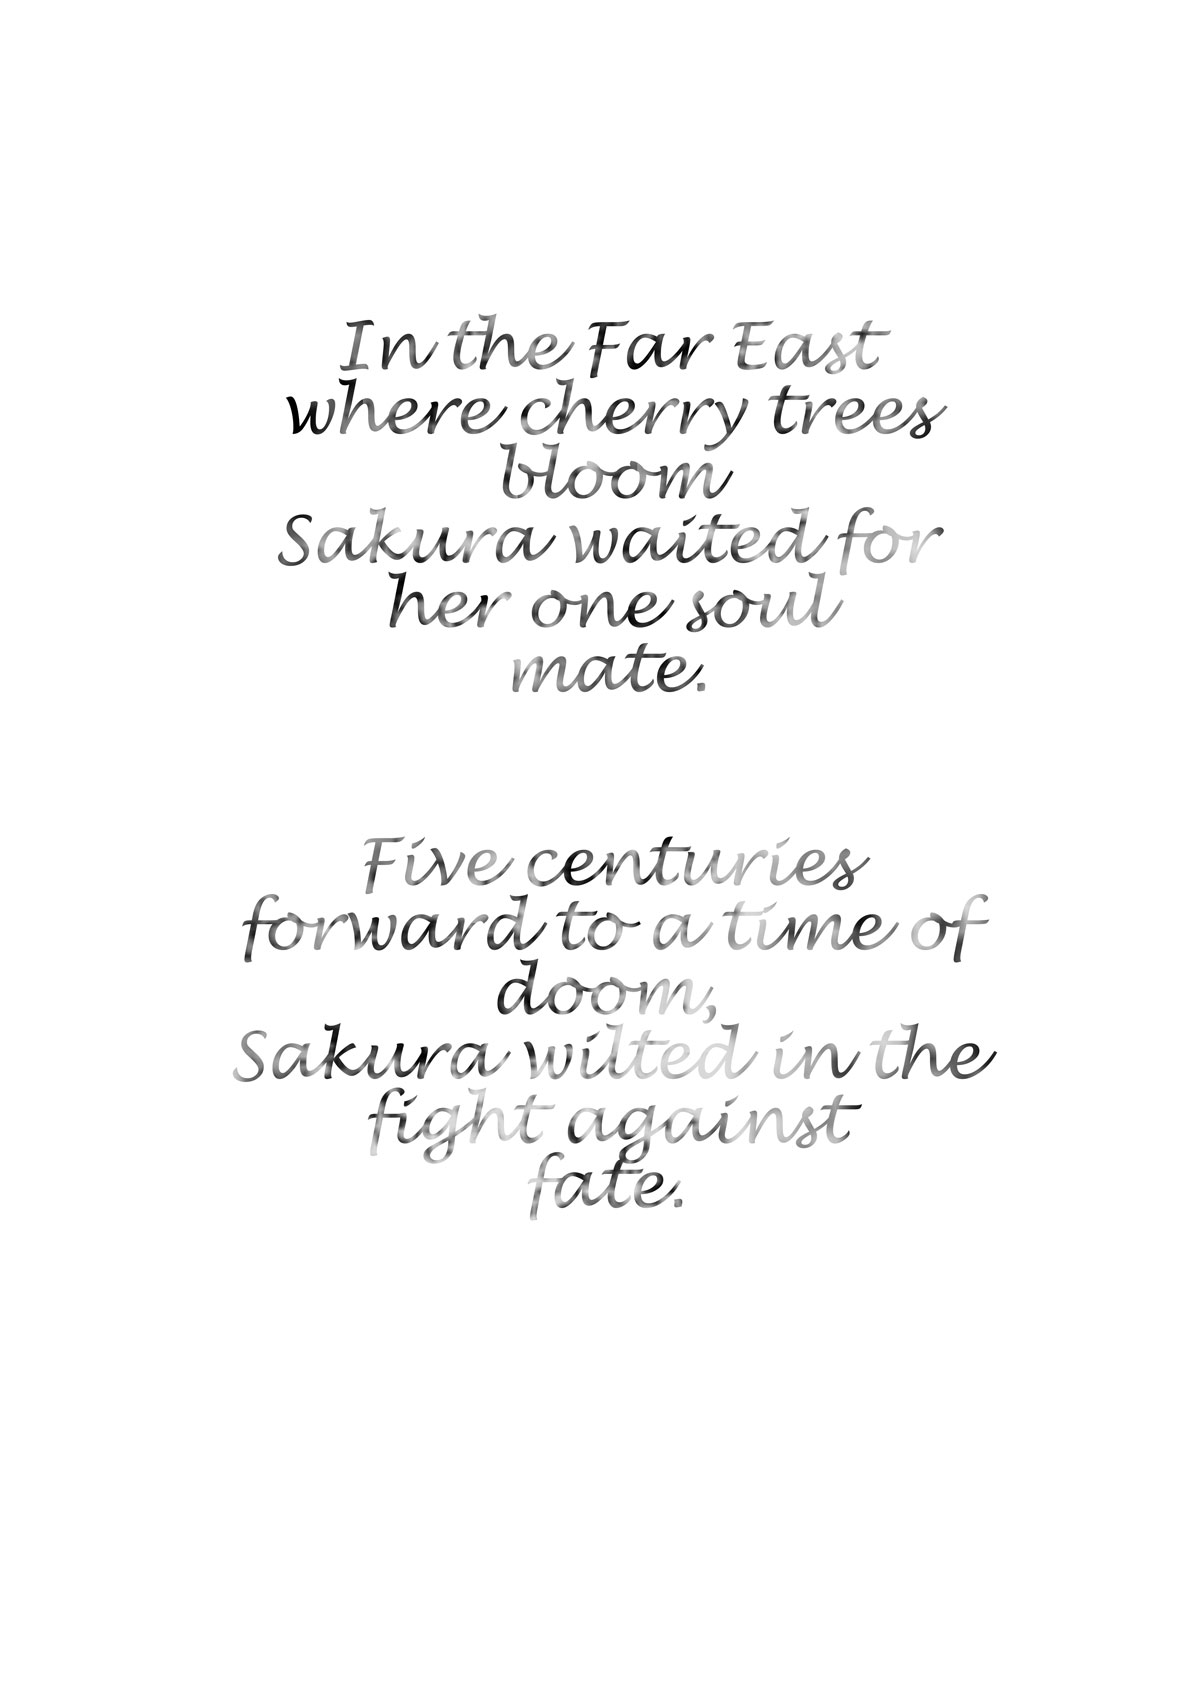 In the Far East
where cherry trees
bloom
Sakura waited for
her one soul
mate.
Five centuries
forward to a time of
doom,
Sakura wilted in the
fight against
fate.